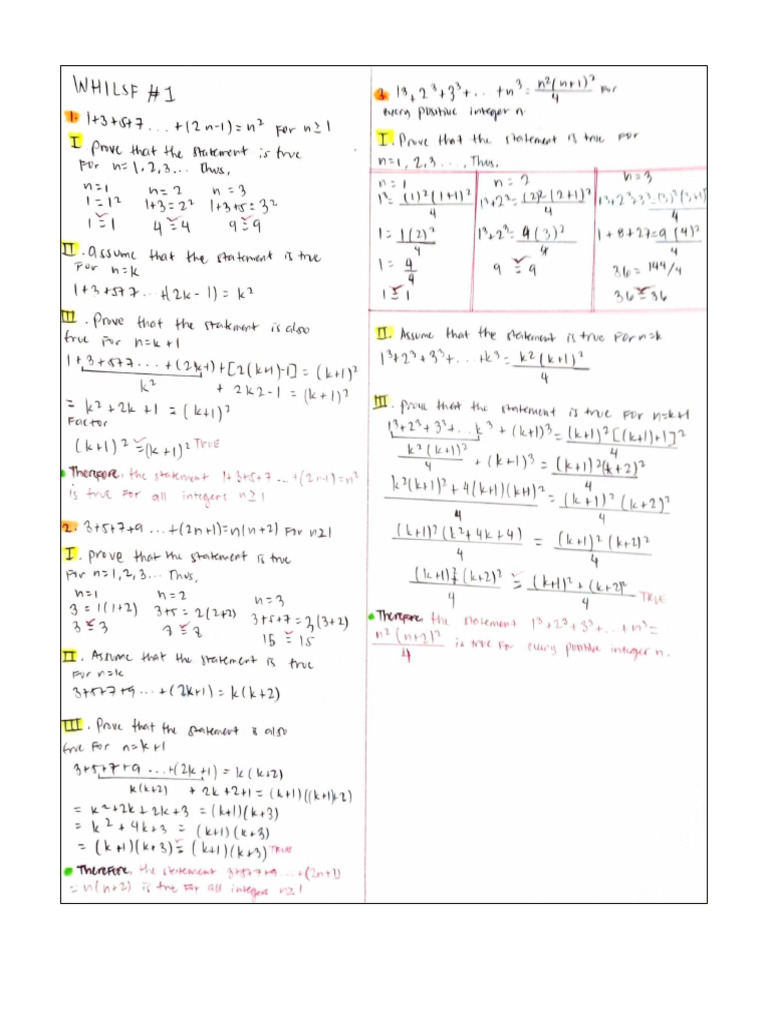 WHILSF #1
1. 1+3+5+7 ... +(2n-1)=n² For n≥1
I. Prove that the statement is true
For n=1,2,3... Thus,
n=1 n=2 n=3
1=1² 1+3=2² 1+3+5=3²
1=1 4=4 9=9
II. Assume that the statement is true
For n=k
1+3+5+7 ... +(2k-1)=k²
III. Prove that the statement is also
true For n=k+1
1+3+5+7 ... +(2k-1)+[2(k+1)-1]=(k+1)²
k² + 2k2-1=(k+1)²
= k²+2k+1=(k+1)²
Factor
(k+1)²=(k+1)² TRUE
Therefore, the statement 1+3+5+7 ... +(2n-1)=n²
is true For all integers n≥1
2. 3+5+7+9 ...+(2n+1)=n(n+2) For n≥1
I. prove that the statement is true
For n=1,2,3... Thus,
n=1 n=2 n=3
3=1(1+2) 3+5=2(2+2) 3+5+7=3(3+2)
3=3 8=8 15=15
II. Assume that the statement is true
For n=k
3+5+7+9 ...+(2k+1)=k(k+2)
III. Prove that the statement is also
true For n=k+1
3+5+7+9 ...+(2k+1)=k(k+2)
k(k+2) + 2k+2+1=(k+1)((k+1)+2)
= k²+2k+2k+3=(k+1)(k+3)
= k²+4k+3=(k+1)(k+3)
=(k+1)(k+3)=(k+1)(k+3) TRUE
Therefore, the statement 3+5+7+9 ...+(2n+1)
=n(n+2) is true For all integers n≥1
3. 1³+2³+3³+...+n³=n²(n+1)²/4 For
every positive integer n.
I. Prove that the statement is true For
n=1,2,3..., Thus,
n=1 n=2 n=3
1³=(1)²(1+1)²/4 1³+2³=(2)²(2+1)²/4 1³+2³+3³=(3)²(3+1)²/4
1=1(2)²/4 1³+2³=4(3)²/4 1+8+27=9(4)²/4
1=4/4 9=9 36=144/4
1=1 36=36
II. Assume that the statement is true For n=k
1³+2³+3³+...+k³=k²(k+1)²/4
III. Prove that the statement is true For n=k+1
1³+2³+3³+...k³+(k+1)³=(k+1)²[(k+1)+1]²/4
k²(k+1)²/4+(k+1)³=(k+1)²(k+2)²/4
k²(k+1)²+4(k+1)(k+1)²/4=(k+1)²(k+2)²/4
(k+1)²(k²+4k+4)/4=(k+1)²(k+2)²/4
(k+1)²+(k+2)²/4=(k+1)²+(k+2)²/4 TRUE
Therefore the statement 1³+2³+3³+...+n³=
n²(n+2)²/4 is true For every positive integer n.